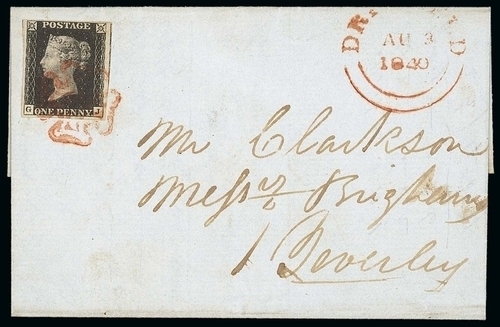 POSTAGE
ONE PENNY
G J
AU 3
1840
Mr Clarkson
Messrs Brigham
Beverley